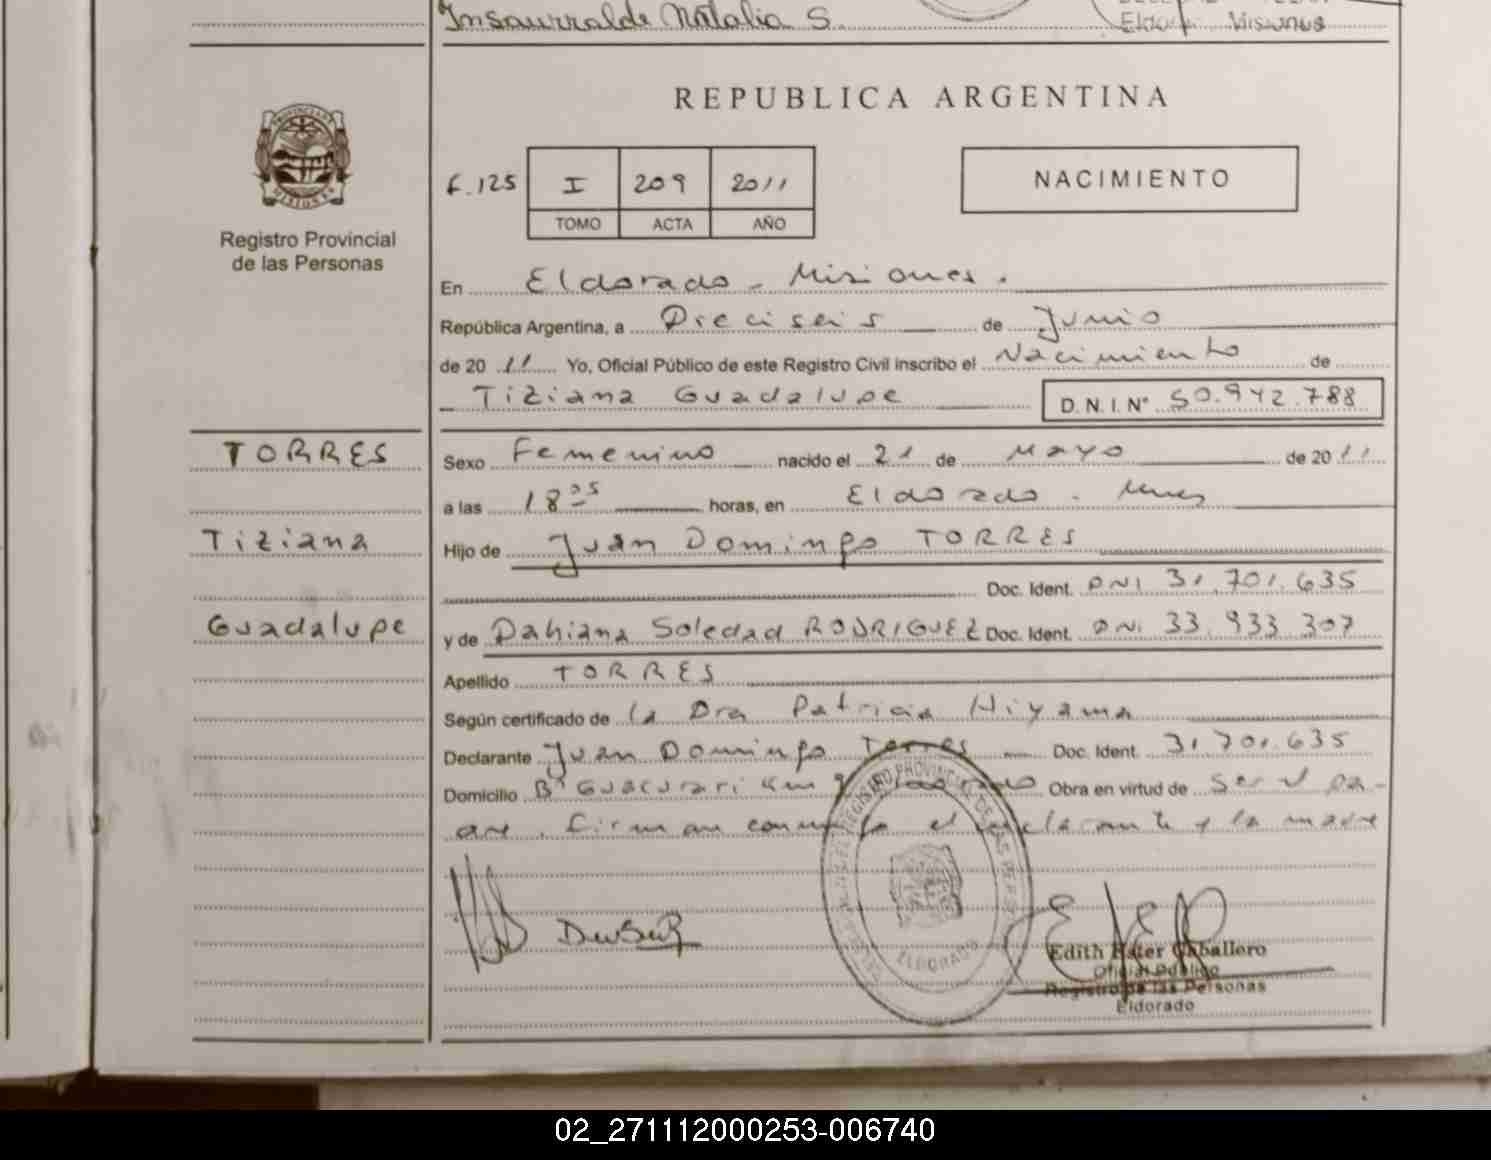 Insaurralde Natalia S.
REPUBLICA ARGENTINA
F. 125 I 209 2011
TOMO ACTA AÑO
NACIMIENTO
Registro Provincial
de las Personas
En Eldorado - Misiones.
República Argentina, a Dieciseis de Junio
de 20 11 Yo, Oficial Público de este Registro Civil inscribo el Nacimiento de
Tiziana Guadalupe D.N.I. N° 50.942.788
TORRES
Sexo Femenino nacido el 21 de Mayo de 20 11
a las 18 05 horas, en Eldorado. Mnes
Tiziana
Hijo de Juan Domingo TORRES
Doc. Ident. DNI 31.701.635
Guadalupe
y de Dahiana Soledad RODRIGUEZ Doc. Ident. DNI 33.933.307
Apellido TORRES
Según certificado de la Dra Patricia Hiyama
Declarante Juan Domingo Torres Doc. Ident. 31.701.635
Domicilio B° Guacurari Km Obra en virtud de Ser el pa-
dre. Firman conmigo el declarante y la madre
ELDORADO
Edith Ester Caballero
Oficial Público
Registro de las Personas
Eldorado
02_271112000253-006740